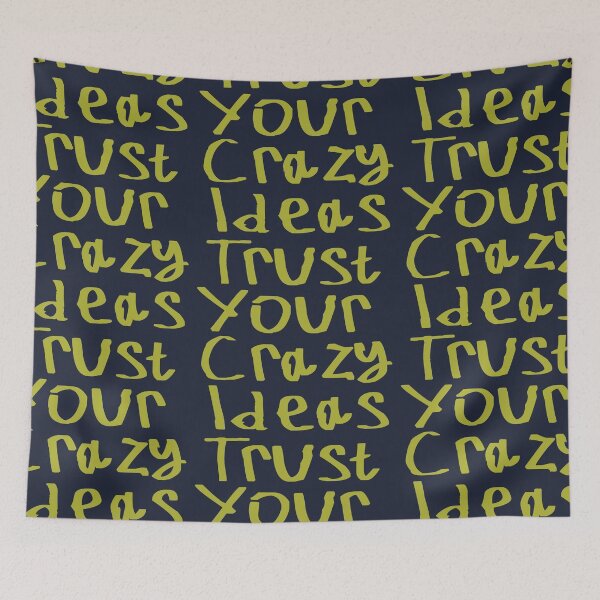 Crazy Trust Crazy
Ideas Your Ideas
Trust Crazy Trust
Your Ideas Your
Crazy Trust Crazy
Ideas Your Ideas
Trust Crazy Trust
Your Ideas Your
Crazy Trust Crazy
Ideas Your Ideas